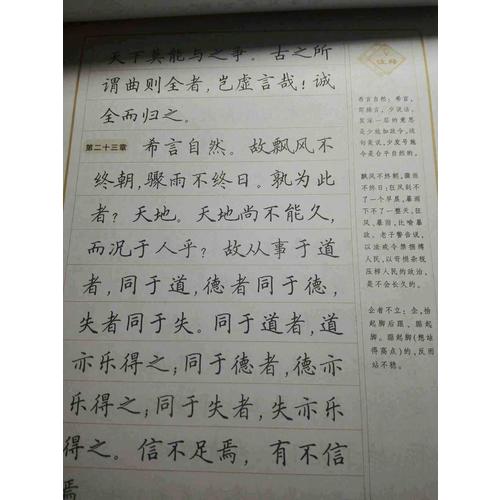 天下莫能与之争。古之所
谓曲则全者,岂虚言哉!诚
全而归之。
第二十三章 希言自然。故飘风不
终朝,骤雨不终日。孰为此
者?天地。天地尚不能久,
而况于人乎?故从事于道
者,同于道,德者同于德,
失者同于失。同于道者,道
亦乐得之;同于德者,德亦
乐得之;同于失者,失亦乐
得之。信不足焉,有不信
焉
注释
希言自然:希言,
即操言,少说话。
更深一层的意思
是少施加政令。这
句是说,少发号施
令是合乎自然的。
飘风不终朝,骤雨
不终日:狂风刮不
了一个早晨,暴雨
下不了一整天。狂
风、暴雨,比喻暴
政。老子警告说,
以法戒令禁捆缚
人民,以苛捐杂税
压榨人民的政治,
是不会长久的。
企者不立:企,抬
起脚后跟、踮起
脚。踮起脚(想站
得高点)的,反而
站不稳。